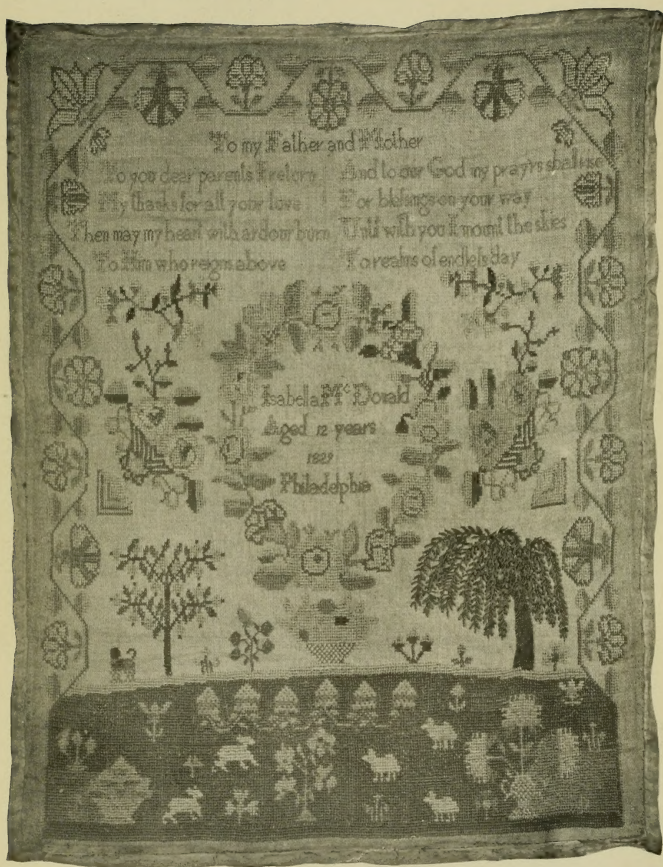 To my Father and Mother
To you dear parents I return
My thanks for all your love
Then may my heart with ardour burn
To Him who reigns above
And to our God my pray'rs shall rise
For blessings on your way
Until with you I mount the skies
To realms of endless day
Isabella Mc Donald
Aged 12 years
1829
Philadelphia